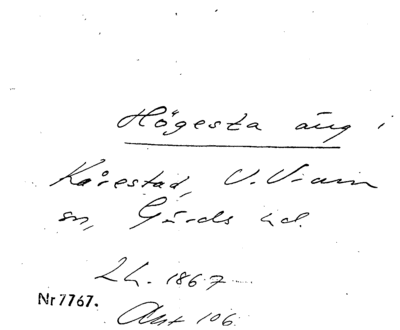 Högesta äng i
Kårestad, V. Vram
sn, Gärds hd.
Lh. 1867
Nr 7767.
Akt 106.